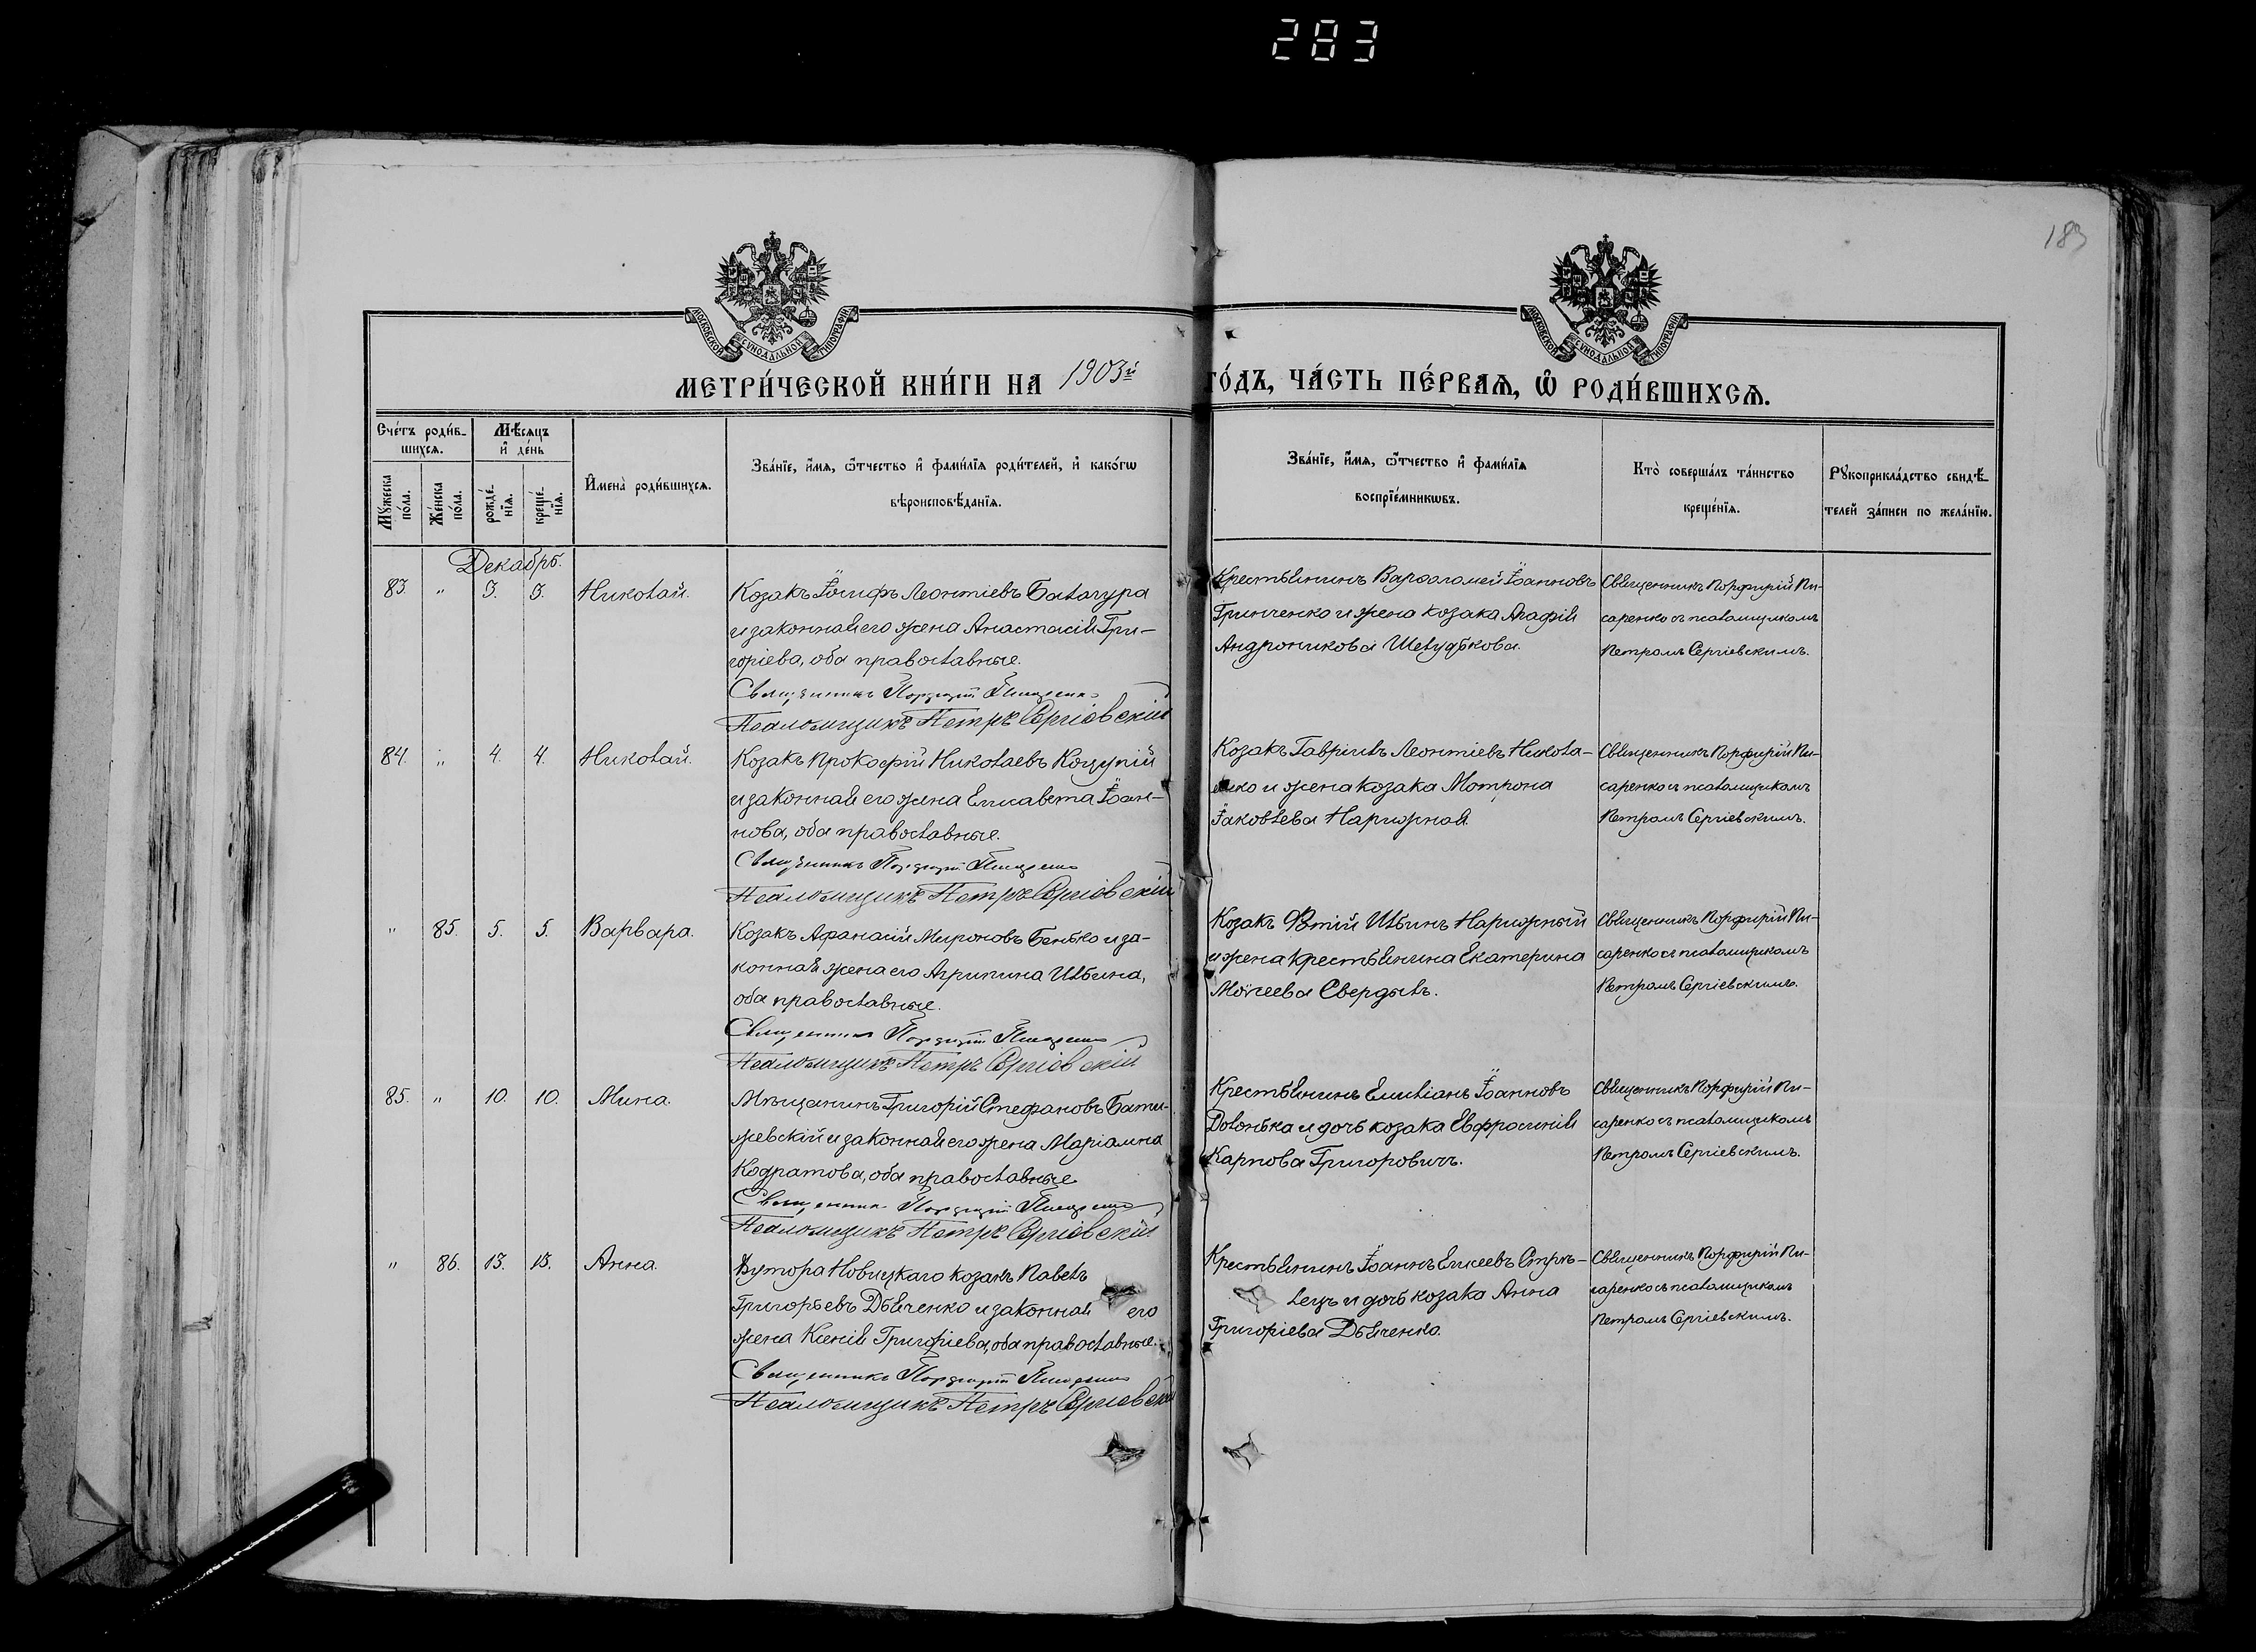 283
183
МОСКОВСКОЙ СѴНОДАЛЬНОЙ ТИПОГРАФІИ
МОСКОВСКОЙ СѴНОДАЛЬНОЙ ТИПОГРАФІИ
МЕТРИ́ЧЕСКОЙ КНИ́ГИ НА 1903й ГО́ДЪ, ЧА́СТЬ ПЕ́РВАѦ, Ѡ҆ РОДИ́ВШИХСѦ.
Сче́тъ роди́в-
шихсѧ.
Мѣ́сѧцъ
и҆ де́нь
Мꙋ́жеска
по́ла.
Же́нска
по́ла.
рожде́-
нїѧ.
креще́-
нїѧ.
И҆мена̀ роди́вшихсѧ.
Зва́нїе, и҆́мѧ, ѻ҆́тчество и҆ фами́лїѧ роди́телей, и҆ како́гѡ
вѣроисповѣ́данїѧ.
Зва́нїе, и҆́мѧ, ѻ҆́тчество и҆ фами́лїѧ
воспрїе́мникѡвъ.
Кто̀ соверша́лъ та́инство
креще́нїѧ.
Рꙋкоприкла́дство свидѣ́-
телей за́писи по жела́нїю.
Декабрь.
83. " 3. 3. Николай.
Козакъ Іосифъ Леонтіевъ Балагура
и законная его жена Анастасія Гри-
горіева, оба православные.
Священникъ Порфирій Писаренко
Псаломщикъ Петръ Сергіевскій
Крестьянинъ Варѳоломей Іоанновъ
Гринченко и жена козака Агафія
Андроникова Шелудькова.
Священникъ Порфирій Пи-
саренко съ псаломщикомъ
Петромъ Сергіевскимъ.
84. " 4. 4. Николай.
Козакъ Прокофій Николаевъ Коцупій
и законная его жена Елисавета Іоан-
нова, оба православные.
Священникъ Порфирій Писаренко
Псаломщикъ Петръ Сергіевскій
Козакъ Гавріилъ Леонтіевъ Никола-
енко и жена козака Мотрона
Іаковлева Нарижная.
Священникъ Порфирій Пи-
саренко съ псаломщикомъ
Петромъ Сергіевскимъ.
" 85. 5. 5. Варвара.
Козакъ Афанасій Мироновъ Бенько и за-
конная жена его Агрипина Ильина,
оба православные.
Священникъ Порфирій Писаренко
Псаломщикъ Петръ Сергіевскій
Козакъ Фотій Ильинъ Нарижный
и жена крестьянина Екатерина
Моѵсеева Свердылъ.
Священникъ Порфирій Пи-
саренко съ псаломщикомъ
Петромъ Сергіевскимъ.
85. " 10. 10. Мина.
Мѣщанинъ Григорій Стефановъ Бати-
жевскій и законная его жена Маріамна
Кодратова, оба православные.
Священникъ Порфирій Писаренко
Псаломщикъ Петръ Сергіевскій
Крестьянинъ Емиліанъ Іоанновъ
Долонька и дочь козака Евфросинія
Карпова Григоровичъ.
Священникъ Порфирій Пи-
саренко съ псаломщикомъ
Петромъ Сергіевскимъ.
" 86. 13. 13. Анна.
Хутора Новицкаго козакъ Павелъ
Григорьевъ Дьяченко и законная его
жена Ксенія Григоріева, оба православные.
Священникъ Порфирій Писаренко
Псаломщикъ Петръ Сергіевскій
Крестьянинъ Іоаннъ Елисеевъ Стрѣ-
лецъ и дочь козака Анна
Григоріева Дьяченко.
Священникъ Порфирій Пи-
саренко съ псаломщикомъ
Петромъ Сергіевскимъ.